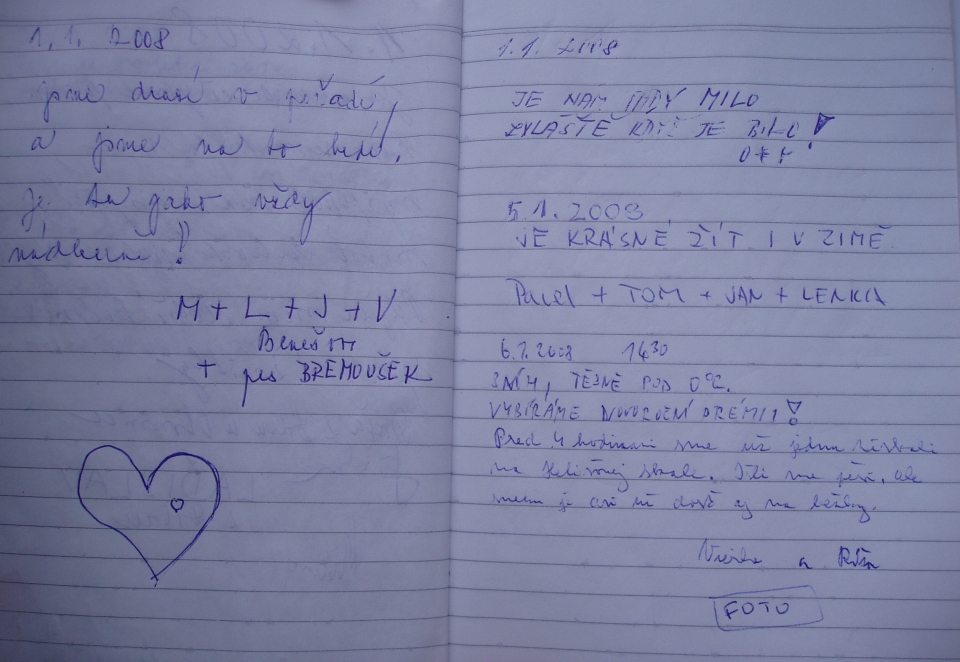 1. 1. 2008
jsme druzí v pořadí,
a jsme na to hrdí.
je tu jako vždy
nádherně!
M + L + J + V
Benešovi
+ pes BŘEMOUŠEK
1.1. 2008
JE NÁM TADY MILO
ZVLÁŠTĚ KDYŽ JE BÍLO!
5.1.2008
JE KRÁSNÉ ŽÍT I V ZIMĚ
Pavel + TOM + JAN + LENKA
6.1.2008 1430
SNÍH, TĚSNĚ POD 0°C.
VYBÍRÁME NOVOROČNÍ PRÉMII!
Pred 4 hodinami sme už jednu
na skale. Išli sme peši, ale
snehu je asi už dosť aj na bežky.
a
FOTO